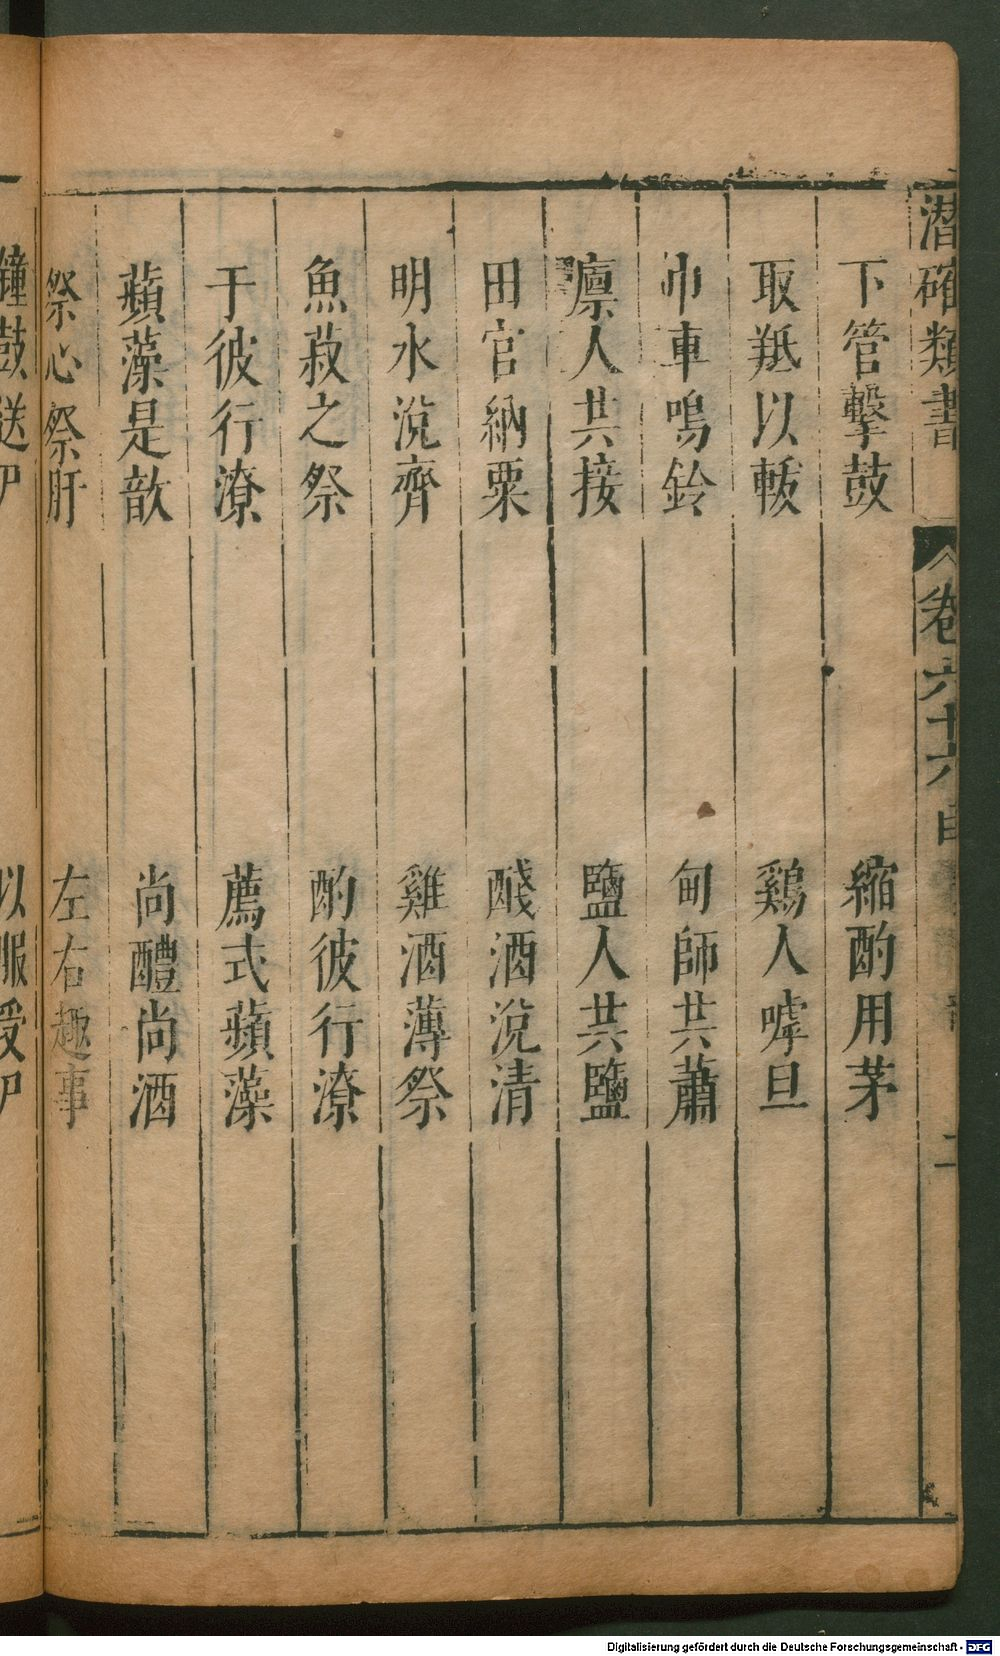 潜確類書
卷六十六
二
下管擊鼓　縮酌用茅
取羝以軷　鷄人嘑旦
巾車鳴鈴　甸師共蕭
廩人共接　鹽人共鹽
田官納粟　醆酒涗清
明水涗齊　雞酒薄祭
魚菽之祭　酌彼行潦
于彼行潦　薦式蘋藻
蘋藻是歆　尚醴尚酒
祭心祭肝　左右趣事
鐘鼓送尸　以服授尸
Digitalisierung gefördert durch die Deutsche Forschungsgemeinschaft - DFG